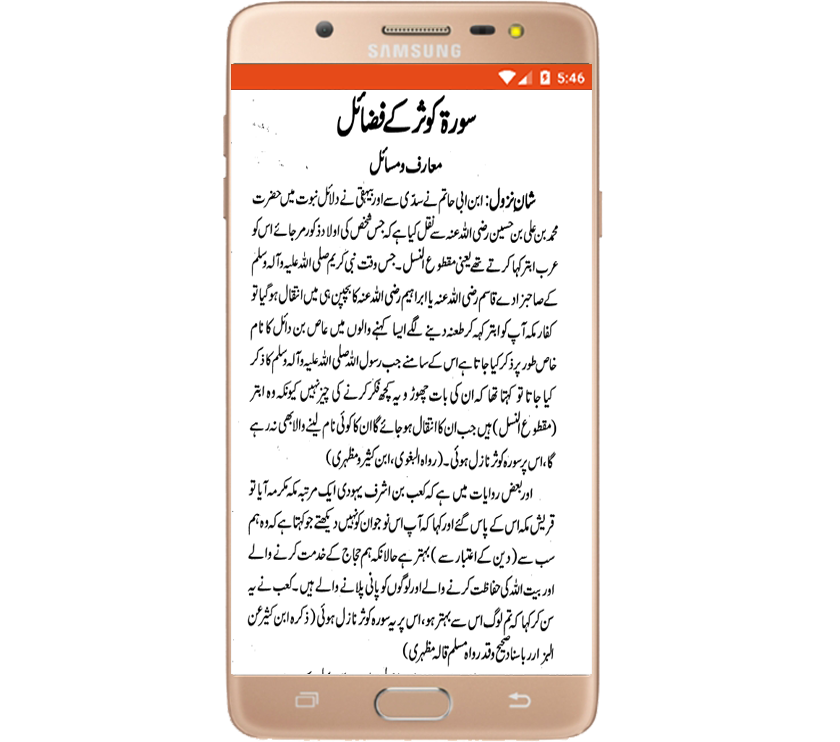 SAMSUNG
5:46
سورۃ کوثر کے فضائل
معارف و مسائل
شانِ نزول: ابن ابی حاتم نے سدّی سے اور بیہقی نے دلائل نبوت میں حضرت
محمد بن علی بن حسین رضی اللہ عنہ سے نقل کیا ہے کہ جس شخص کی اولاد ذکور مر جائے اس کو
عرب ابتر کہا کرتے تھے یعنی مقطوع النسل۔ جس وقت نبی کریم صلی اللہ علیہ وآلہ وسلم
کے صاحبزادے قاسم رضی اللہ عنہ یا ابراہیم رضی اللہ عنہ کا بچپن ہی میں انتقال ہو گیا تو
کفار مکہ آپ کو ابتر کہہ کر طعنہ دینے لگے ایسا کہنے والوں میں عاص بن وائل کا نام
خاص طور پر ذکر کیا جاتا ہے اس کے سامنے جب رسول اللہ صلی اللہ علیہ وآلہ وسلم کا ذکر
کیا جاتا تو کہتا تھا کہ ان کی بات چھوڑو یہ کچھ فکر کرنے کی چیز نہیں کیونکہ وہ ابتر
(مقطوع النسل) ہیں جب ان کا انتقال ہو جائے گا ان کا کوئی نام لینے والا بھی نہ رہے
گا، اس پر سورہ کوثر نازل ہوئی۔ (رواہ البغوی، ابن کثیر و مظہری)
اور بعض روایات میں ہے کہ کعب بن اشرف یہودی ایک مرتبہ مکہ مکرمہ آیا تو
قریش مکہ اس کے پاس گئے اور کہا کہ آپ اس نوجوان کو نہیں دیکھتے جو کہتا ہے کہ وہ ہم
سب سے (دین کے اعتبار سے) بہتر ہے حالانکہ ہم حجاج کے خدمت کرنے والے
اور بیت اللہ کی حفاظت کرنے والے اور لوگوں کو پانی پلانے والے ہیں۔ کعب نے یہ
سن کر کہا کہ تم لوگ اس سے بہتر ہو، اس پر یہ سورہ کوثر نازل ہوئی (ذکرہ ابن کثیر عن
البزار باسناد صحیح وقد رواہ مسلم قالہ مظہری)